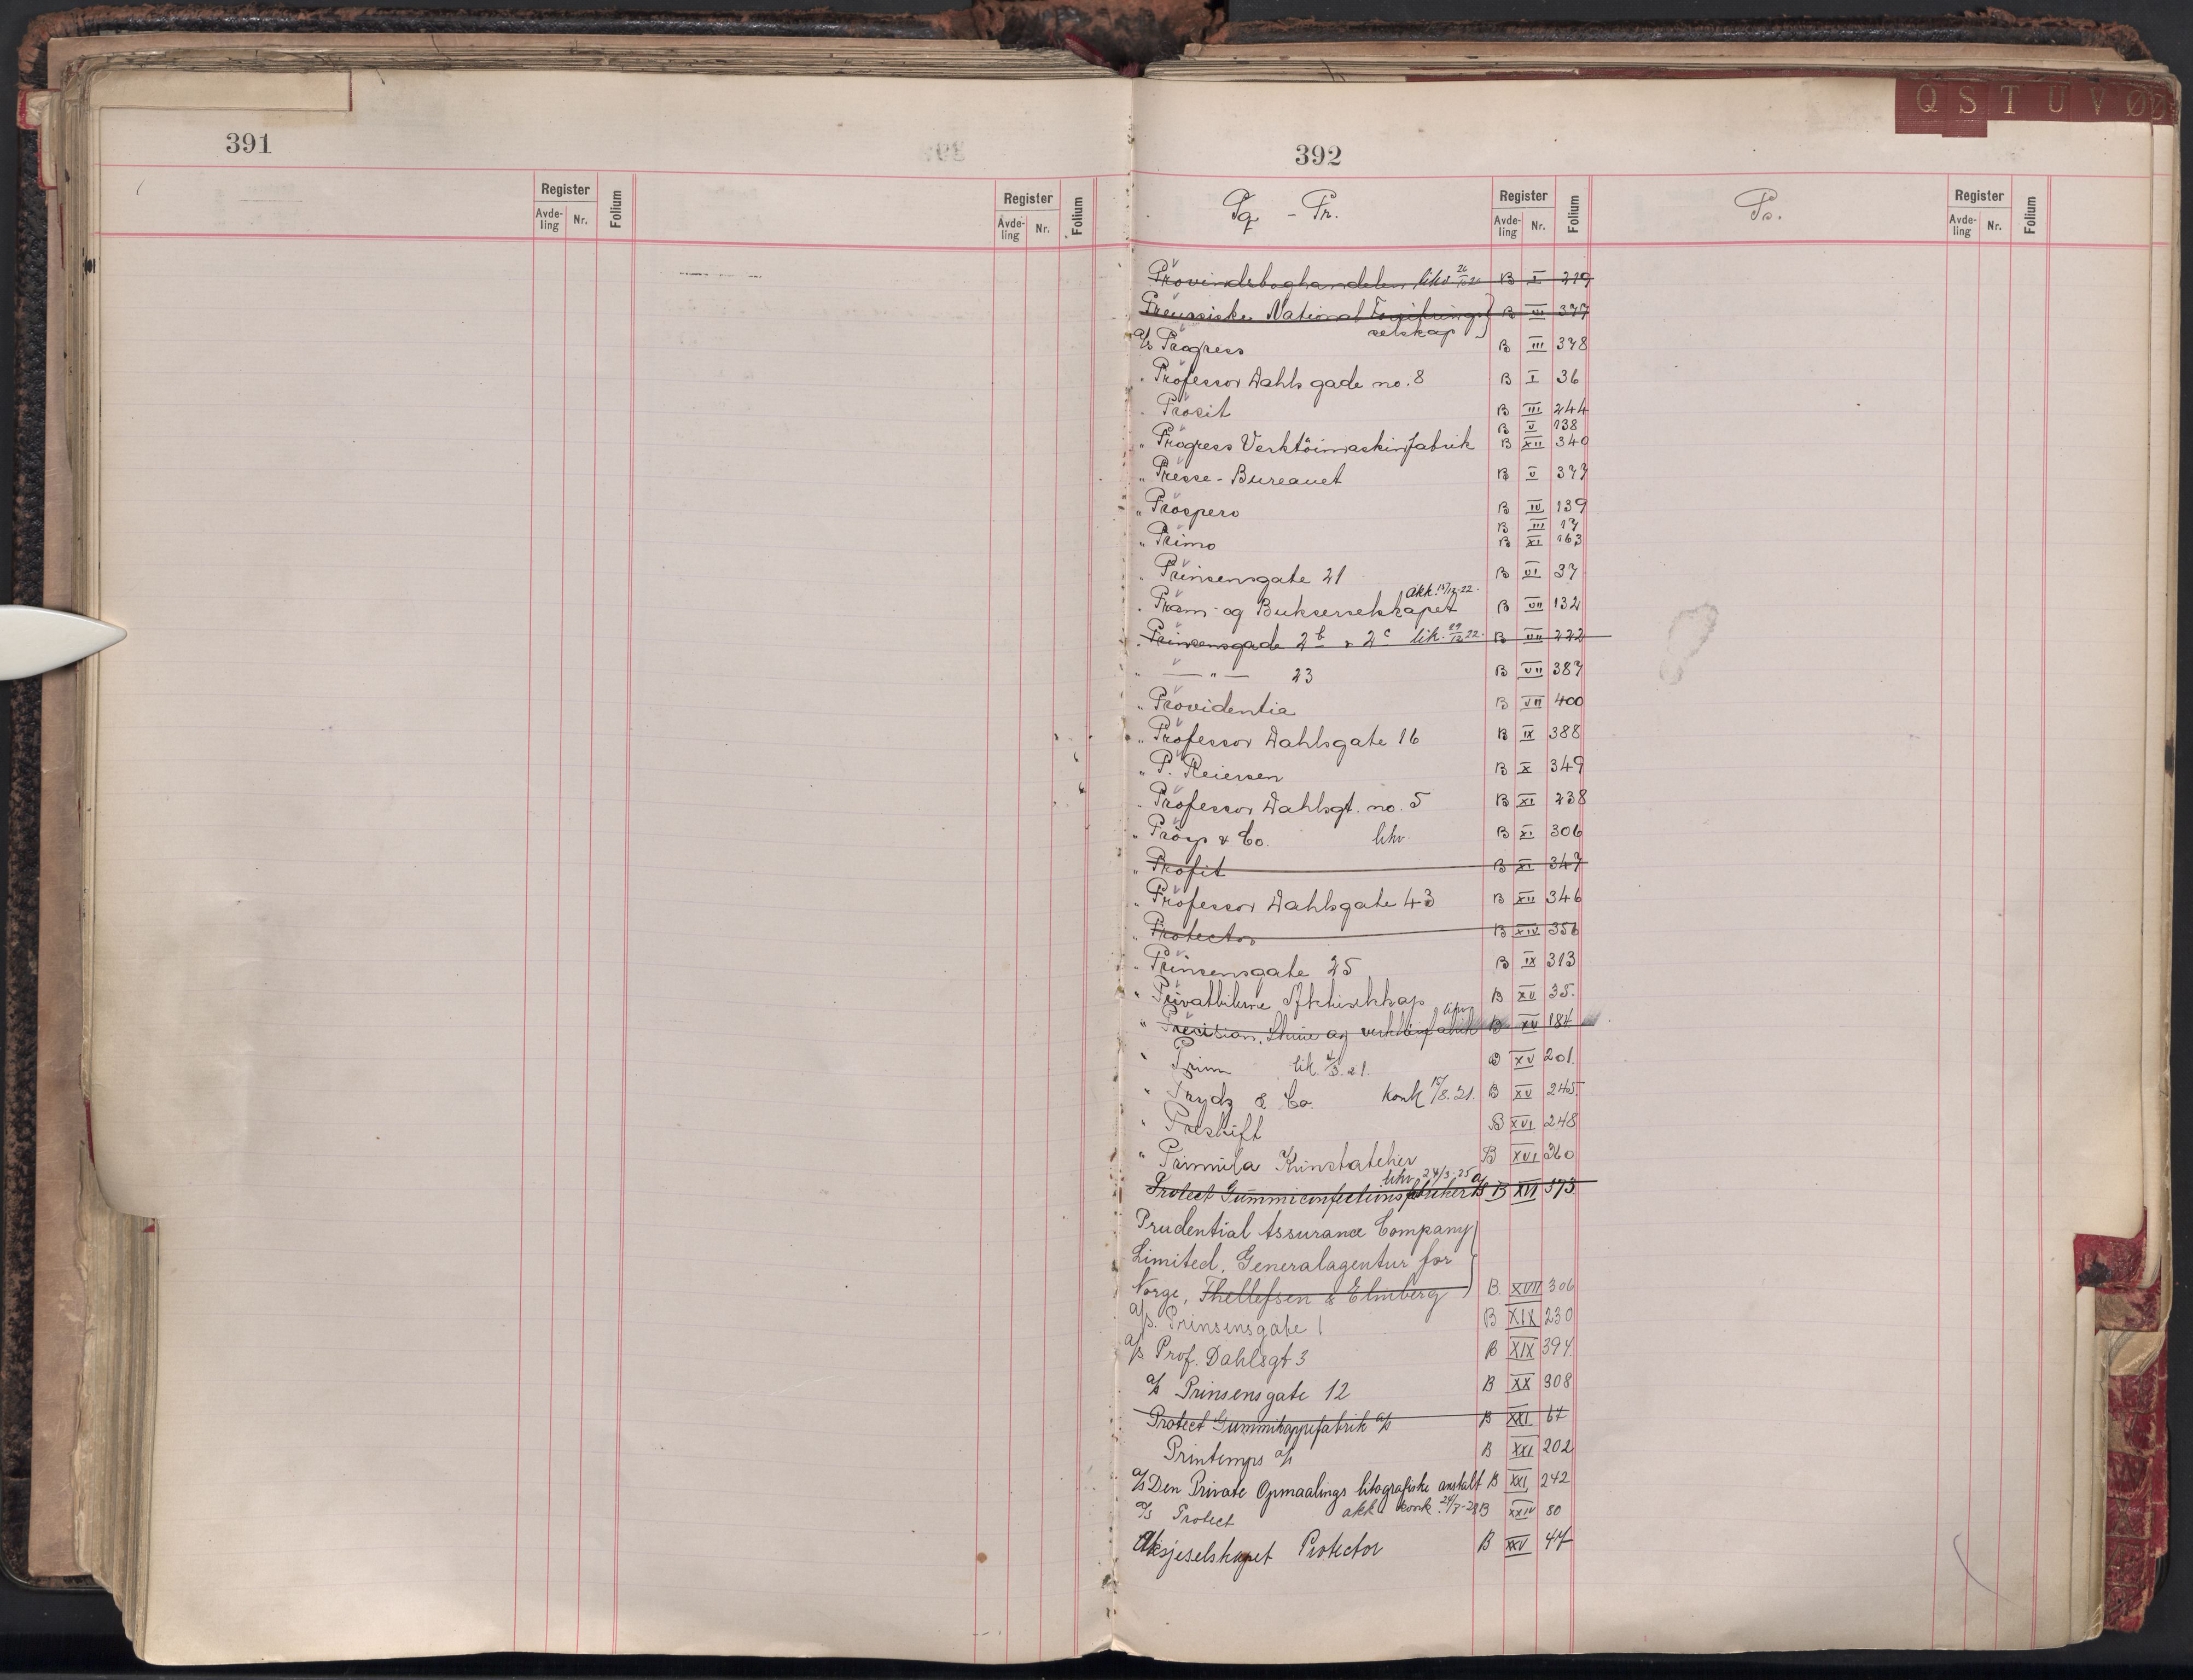 391
Register
Avde-ling Nr. Folium
Register
Avde-ling Nr. Folium
Q S T U V Ø
392
Pq - Pr.
Register
Avde-ling Nr. Folium
Ps.
Register
Avde-ling Nr. Folium
Provindsboghandelen likv 26/10 20 B I 219
Preussiske National Forsikrings B VI 377
selskap
A/s Progress B III 378
" Professor Dahls gade no. 8 B I 36
" Prosit B III 244
B V 138
" Progress Verktöimaskinfabrik B XII 340
" Presse-Bureauet B V 377
" Prospero B IV 139
B III 17
" Primo B XI 163
" Prinsensgate 21 B VI 37
akk. 15/12-22.
" Pram- og Bukserselskapet B VII 132
" Prinsensgade 2b & 2c lik. 29/12 22. B VII 222
" — " — 23 B VII 387
" Providentia B VII 400
" Professor Dahlsgate 16 B IX 388
" P. Reiersen B X 349
" Professor Dahlsgt. no. 5 B XI 238
" Pröys & Co. likv. B XI 306
" Profit B XI 347
" Professor Dahlsgate 43 B XII 346
" Protector B XIV 356
" Prinsensgate 25 B IX 313
" Privatbilerne Aktieselskap B XV 35.
likv
" Precision, Skrue og verktöifabrik B XV 184
" Prim lik. 4/3.21. B XV 201.
" Prydz & Co. konk 15/8.21. B XV 245.
" Preskift B XVI 248
" Primula Kunstatelier B XVI 360
likv 24/3-25
Protect Gummiconfectionsfabriker A/s B XVI 373
Prudential Assurance Company
Limited, Generalagentur for
Norge, Thellefsen & Elmberg B. XVII 306
A/s. Prinsensgate 1 B XIX 230
A/s Prof. Dahlsgt 3 B XIX 394.
A/s Prinsensgate 12 B XX 308
Protect Gummikappefabrik A/s B XXI 67
Printemps A/s B XXI 202
A/s Den Private Opmaalings litografiske anstalt B XXI, 242
A/s Protect akk konk. 24/7-28 B XXIV 80
Aksjeselskapet Protector B XXV 47